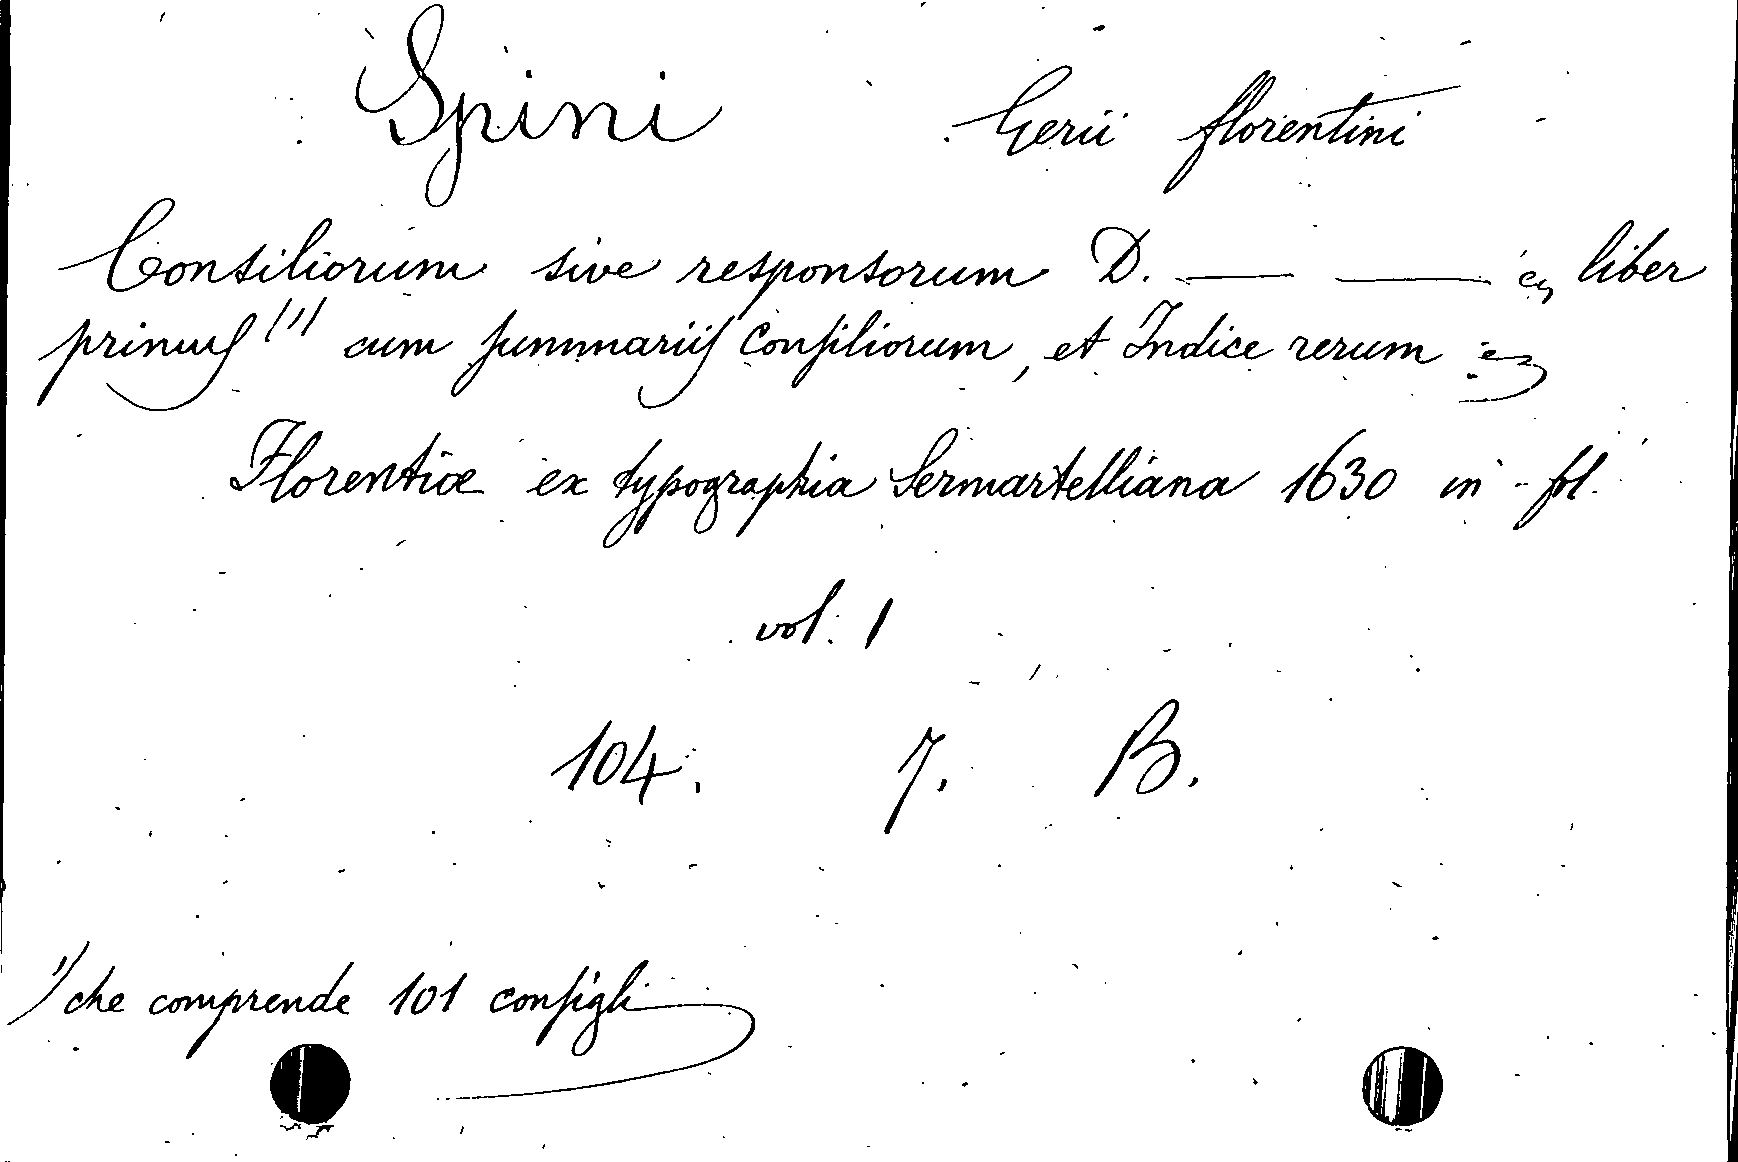 Spini Gerii florentini
Consiliorum sive responsorum D. — — &c, liber
primuſ (1) cum ſummariiſ Conſiliorum, et Indice rerum &c
Florentiæ ex typographia Sermartelliana 1630 in-fol.
vol. 1
104. 7. B.
1) che comprende 101 conſigli